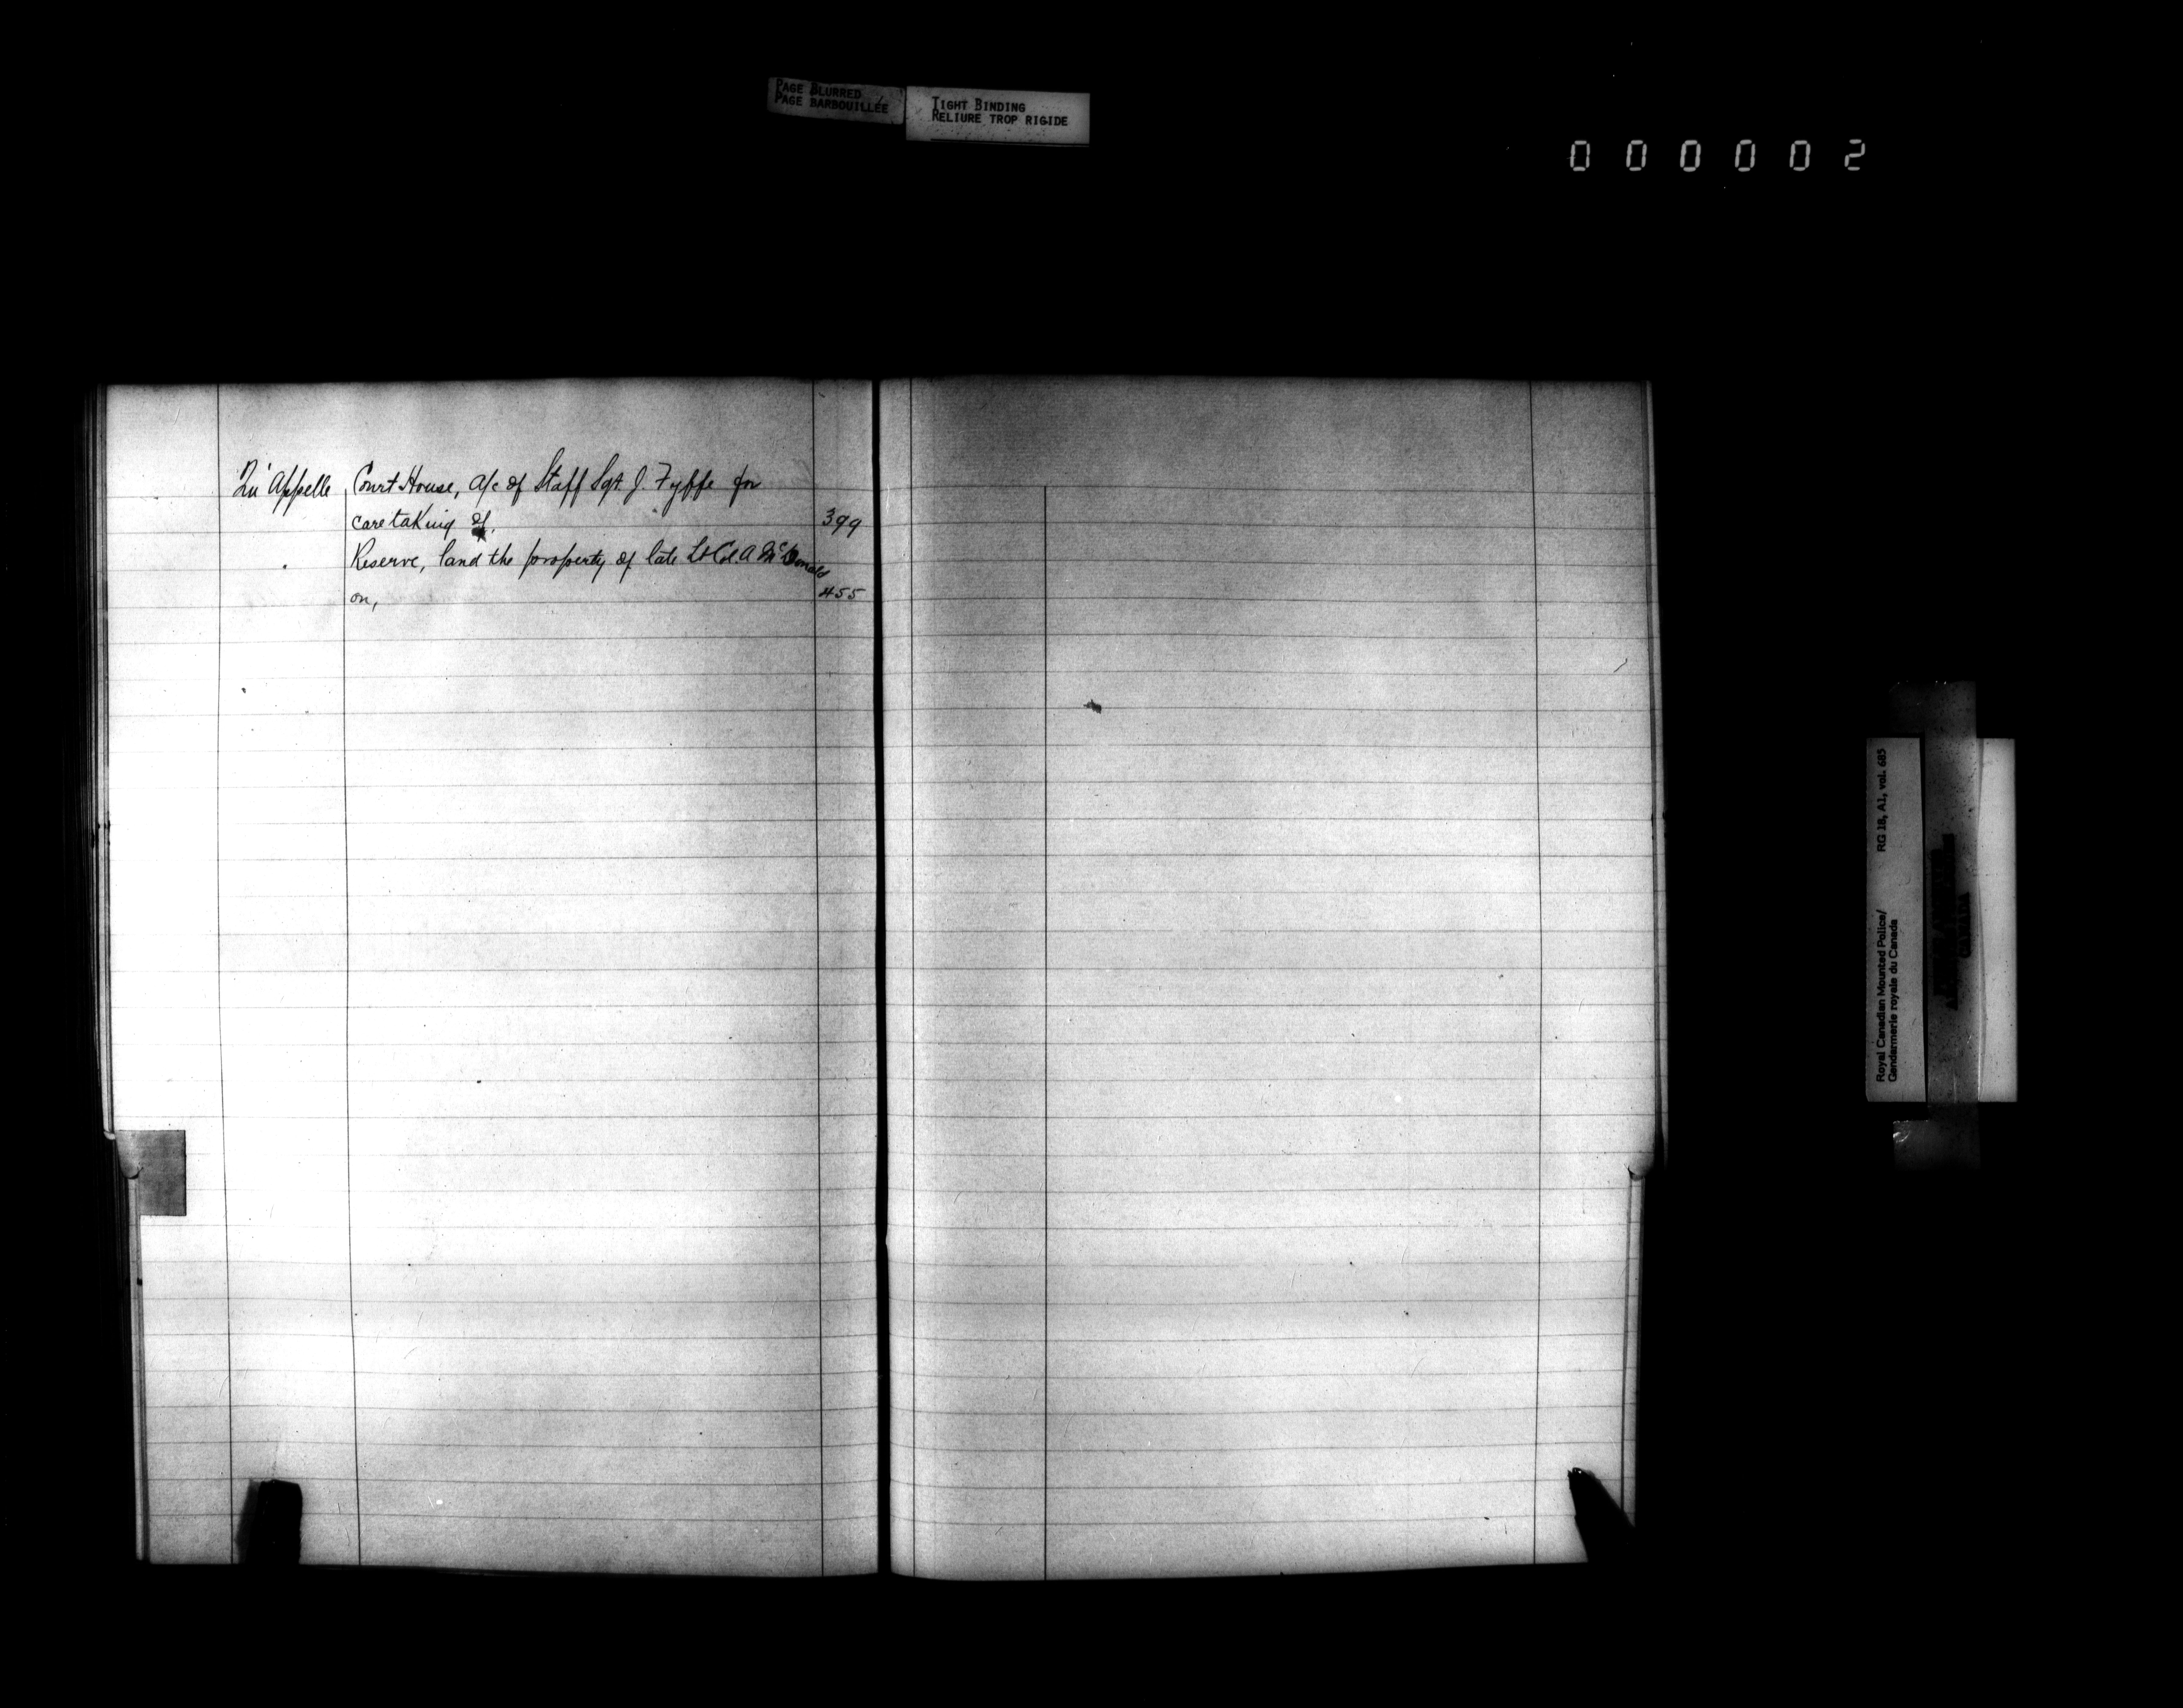 PAGE BLURRED
PAGE BARBOUILLÉE
TIGHT BINDING
RELIURE TROP RIGIDE
000002
Qu'Appelle Court House, a/c of Staff Sgt. J. Fyffe for
caretaking of. 399
Reserve, land the property of late Lt Col. A McDonald
on, 455
Royal Canadian Mounted Police/ RG 18, A1, vol. 685
Gendarmerie royale du Canada
CANADA